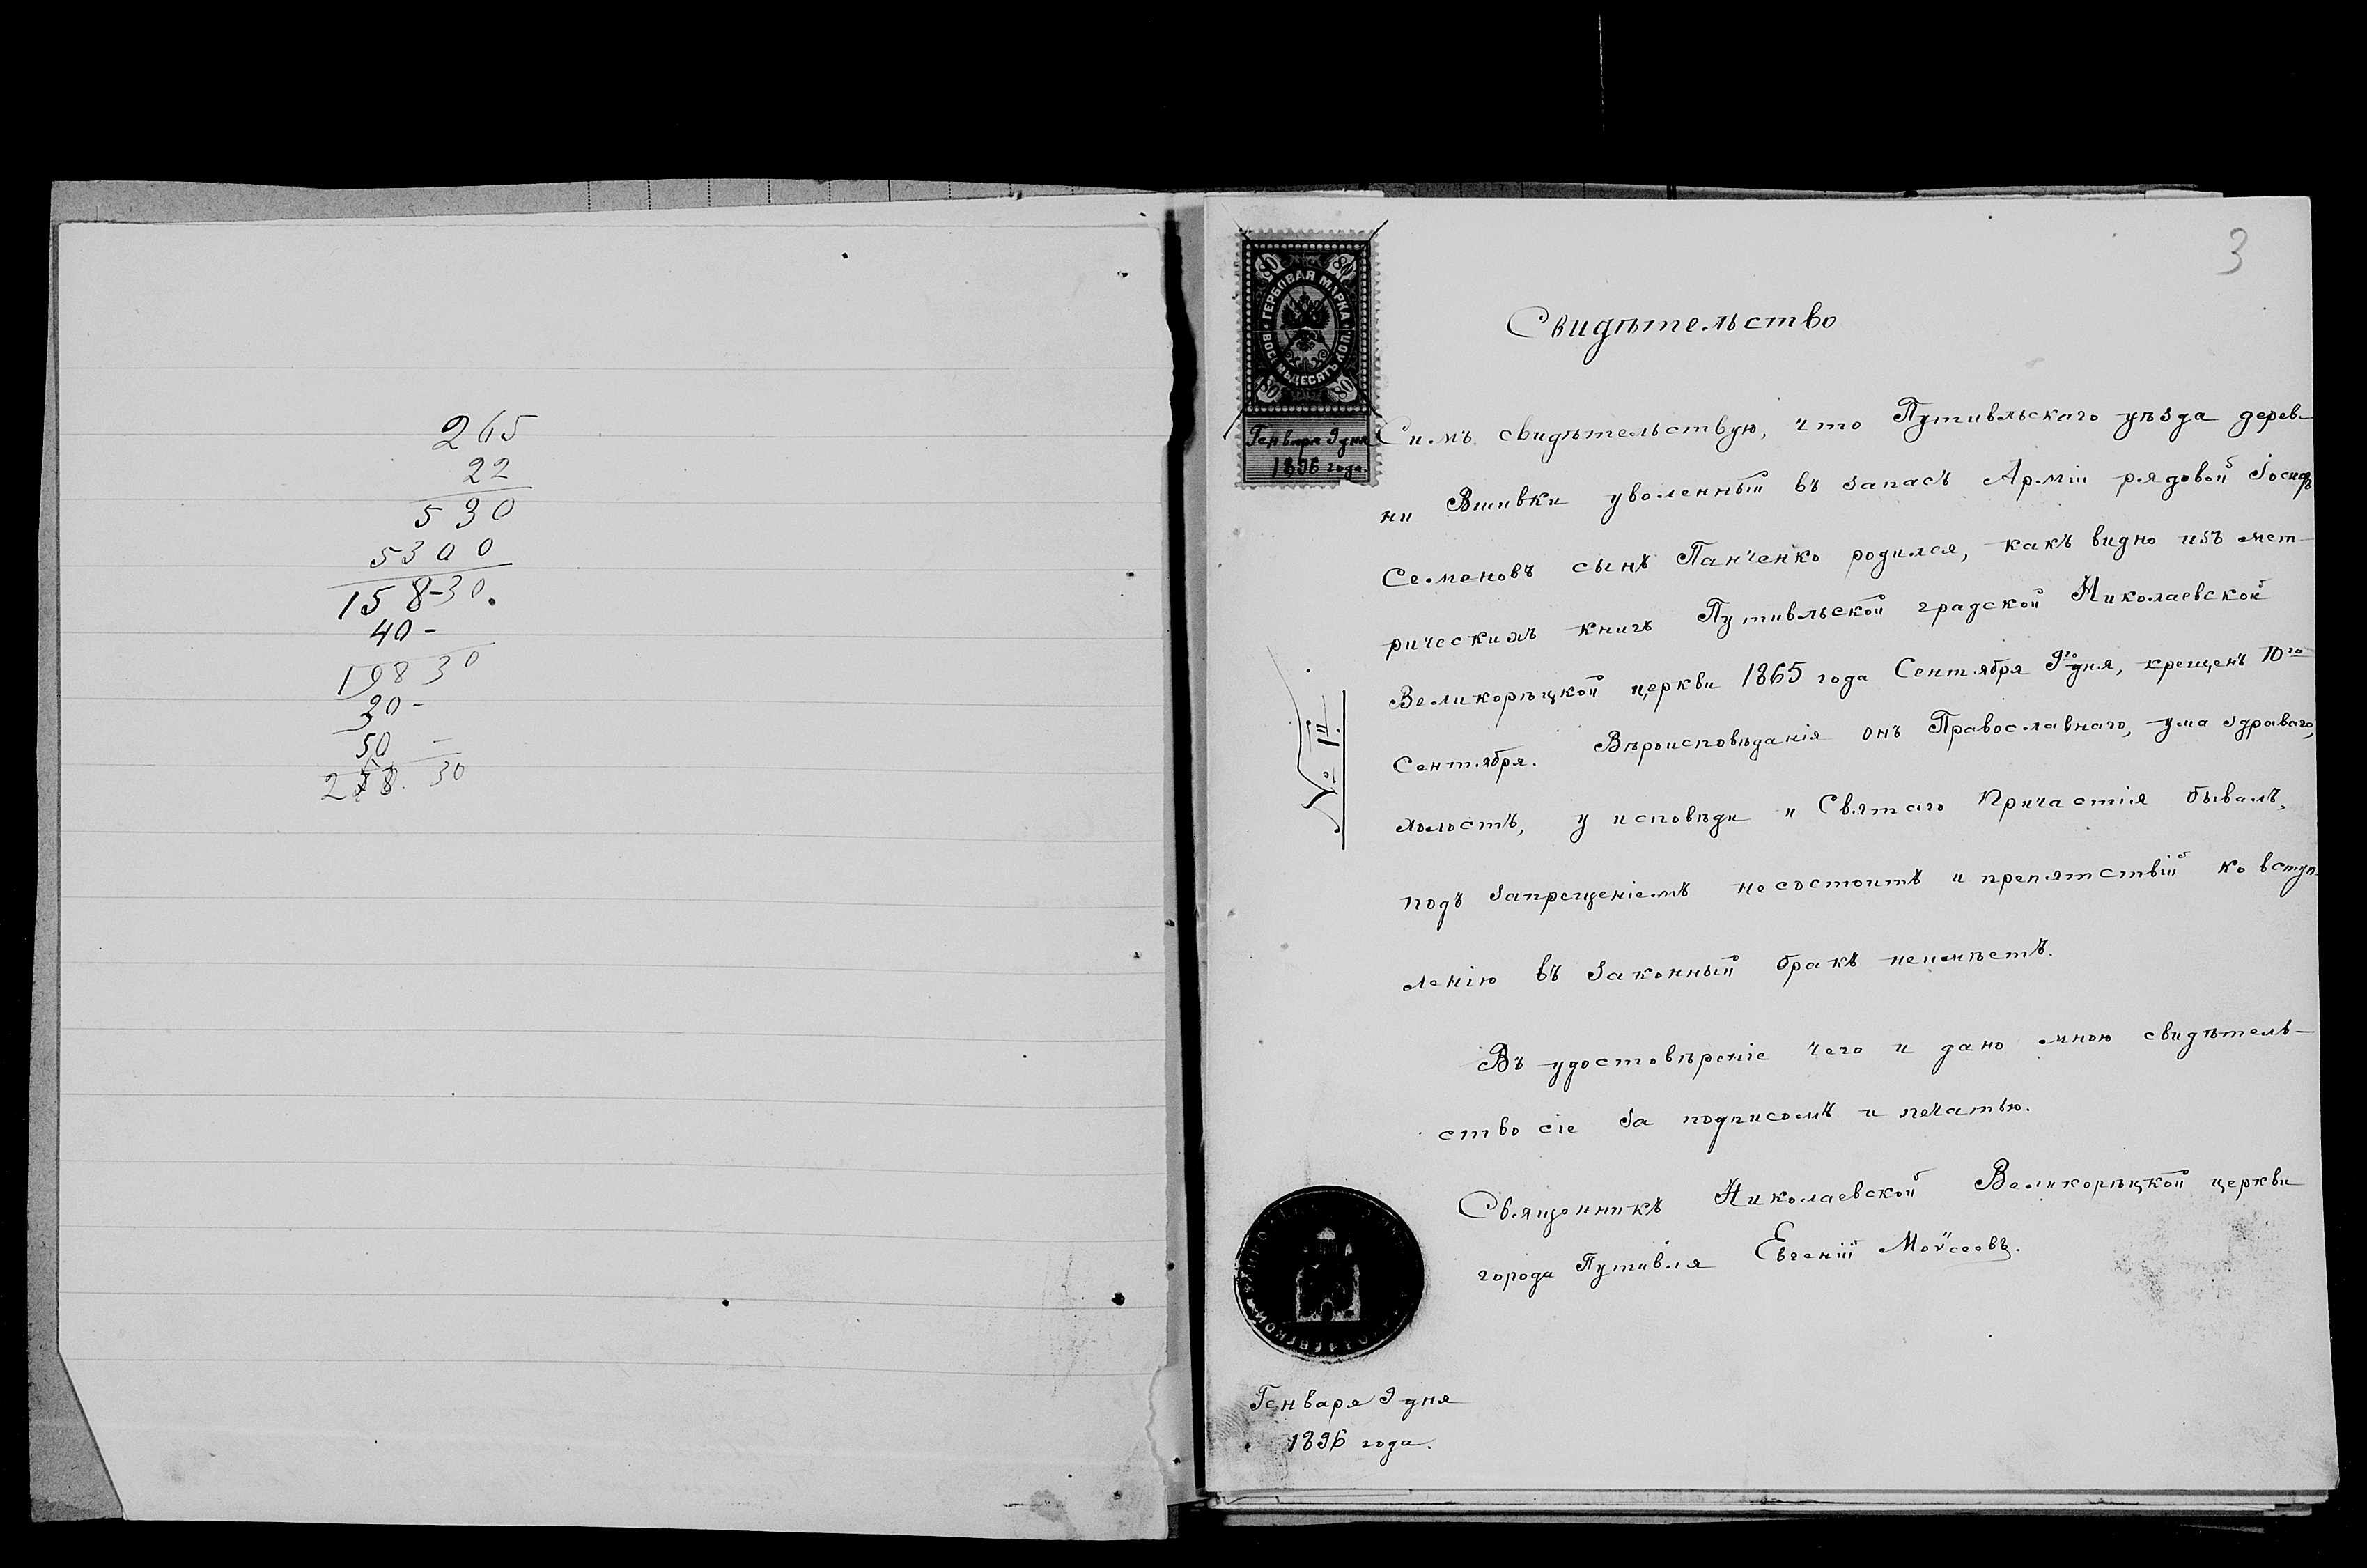 265
22
530
5300
158-30.
40-
198 30
20-
50 -
30
3
80 80
ГЕРБОВАЯ МАРКА
ВОСЕМЬДЕСЯТЪ КОП.
80 80
Генваря 9 дня
1896 года.
Свидѣтельство
Симъ свидѣтельствую, что Путивльскаго уѣзда дерев-
ни Вшивки уволенный въ запасъ Арміи рядовой Іосифъ
Семеновъ сынъ Панченко родился, какъ видно изъ мет-
рическихъ книгъ Путивльской градской Николаевской
Великорѣцкой церкви 1865 года Сентября 9го дня, крещенъ 10го
Сентября. Вѣроисповѣданія онъ Православнаго, ума здраваго,
холостъ, у исповѣди и Святаго Причастія бывалъ,
подъ запрещеніемъ несостоитъ и препятствій ко вступ-
ленію въ законный бракъ неимѣетъ.
Въ удостовѣреніе чего и дано мною свидѣтель-
ство сіе за подписомъ и печатью.
Священникъ Николаевской Великорѣцкой церкви
города Путивля Евгеній Моѵсеевъ.
№ 1й.
Генваря 9 дня
1896 года.